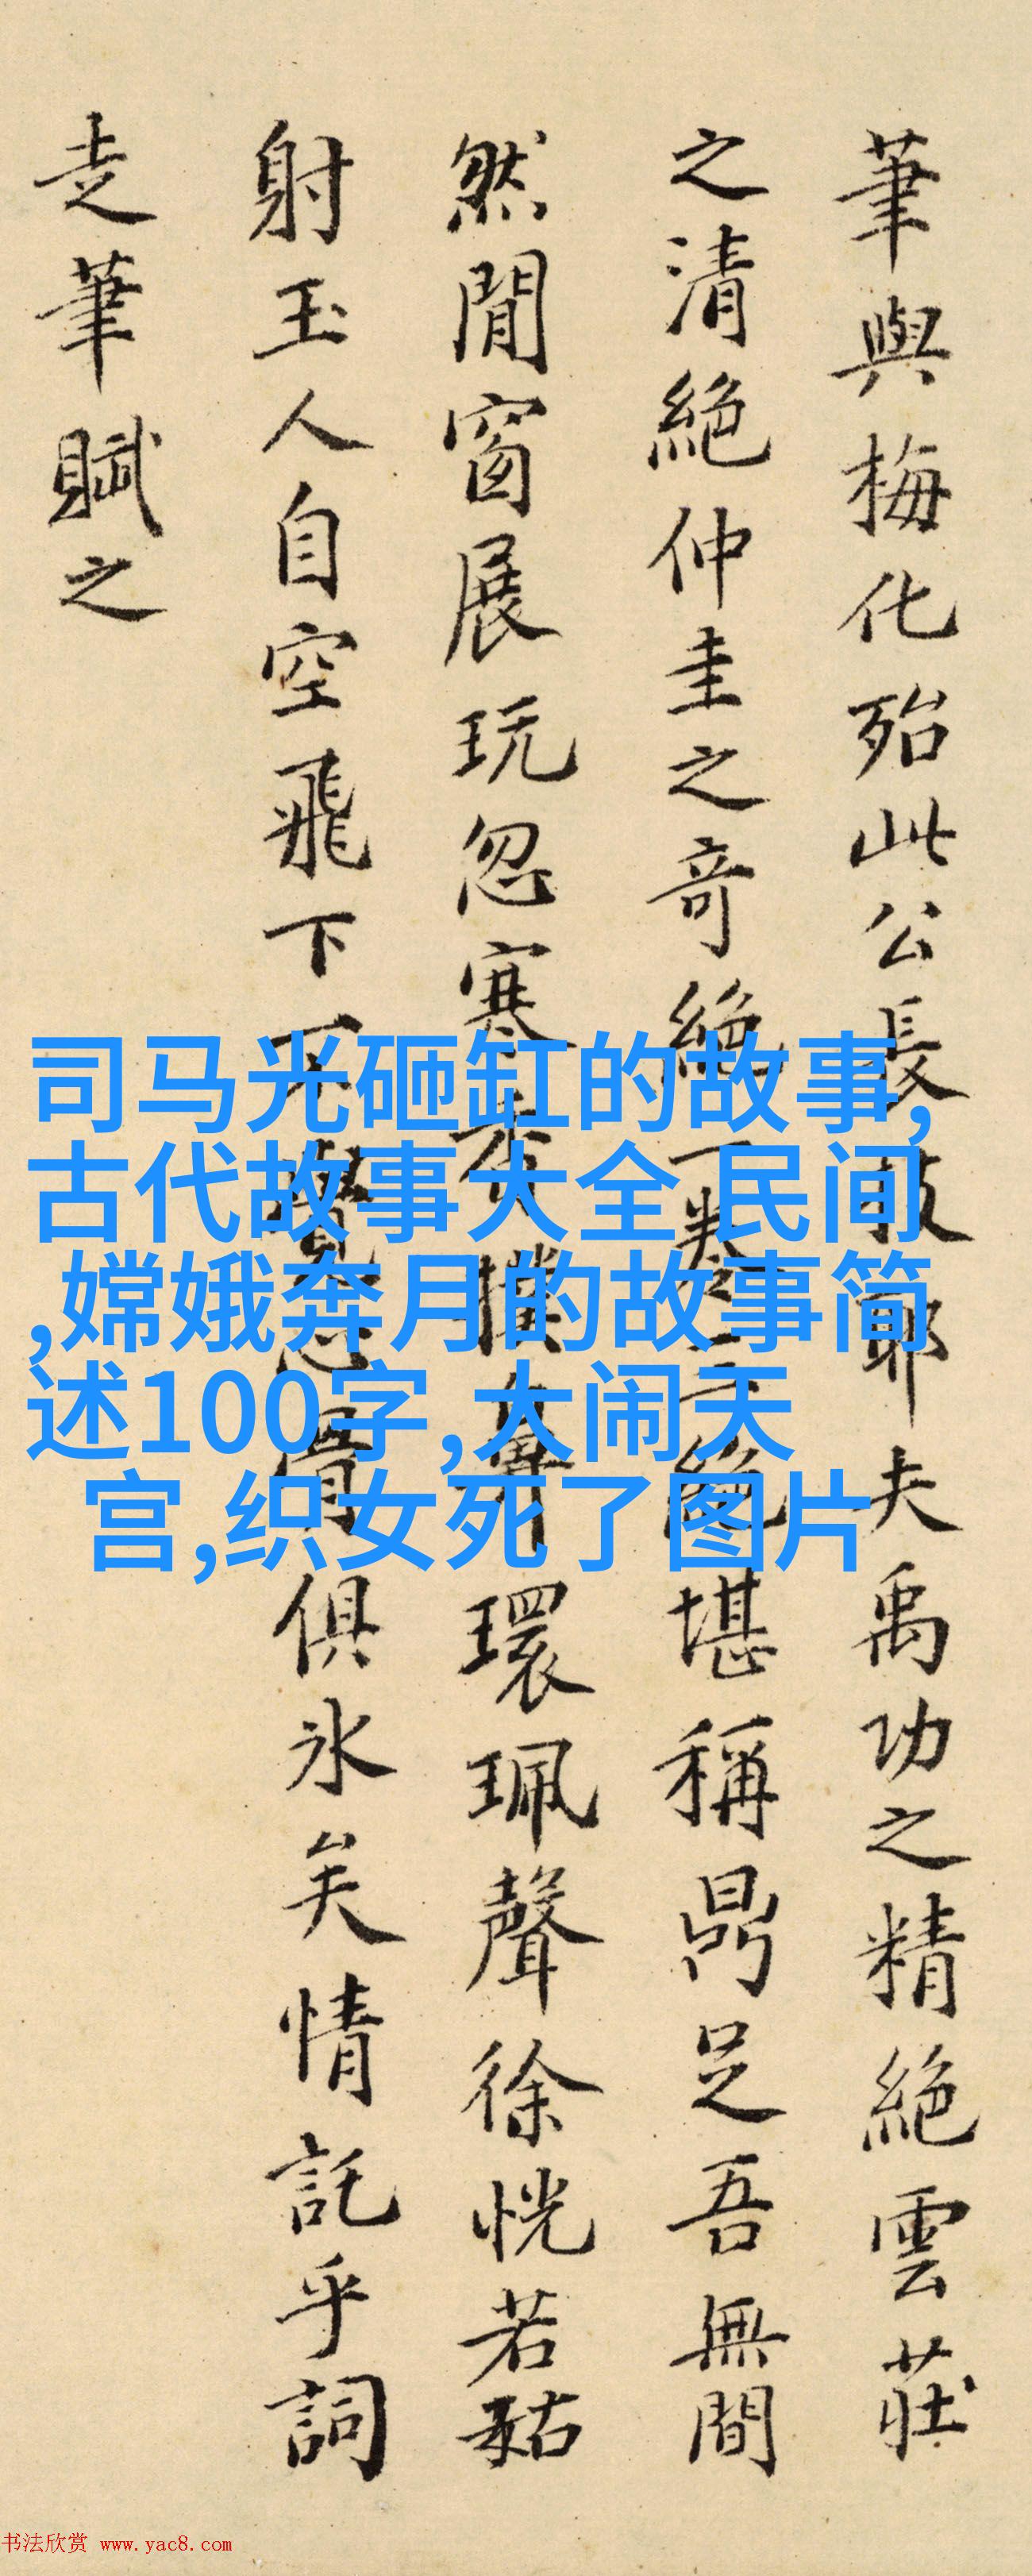 筆與梅化殆此公長技耶夫禹功之精絕雲莊
之清絕仲圭之奇絕堪稱鼎足吾無間
然閒窗展玩忽寒香撲鼻環珮聲徐恍若藐姑
射玉人自空飛下不覺俱冰矣情託乎詞
走筆賦之
司马光砸缸的故事,
古代故事大全 民间
,嫦娥奔月的故事简
述100字,大闹天
宫,织女死了图片
书法欣赏 www.yac8.com